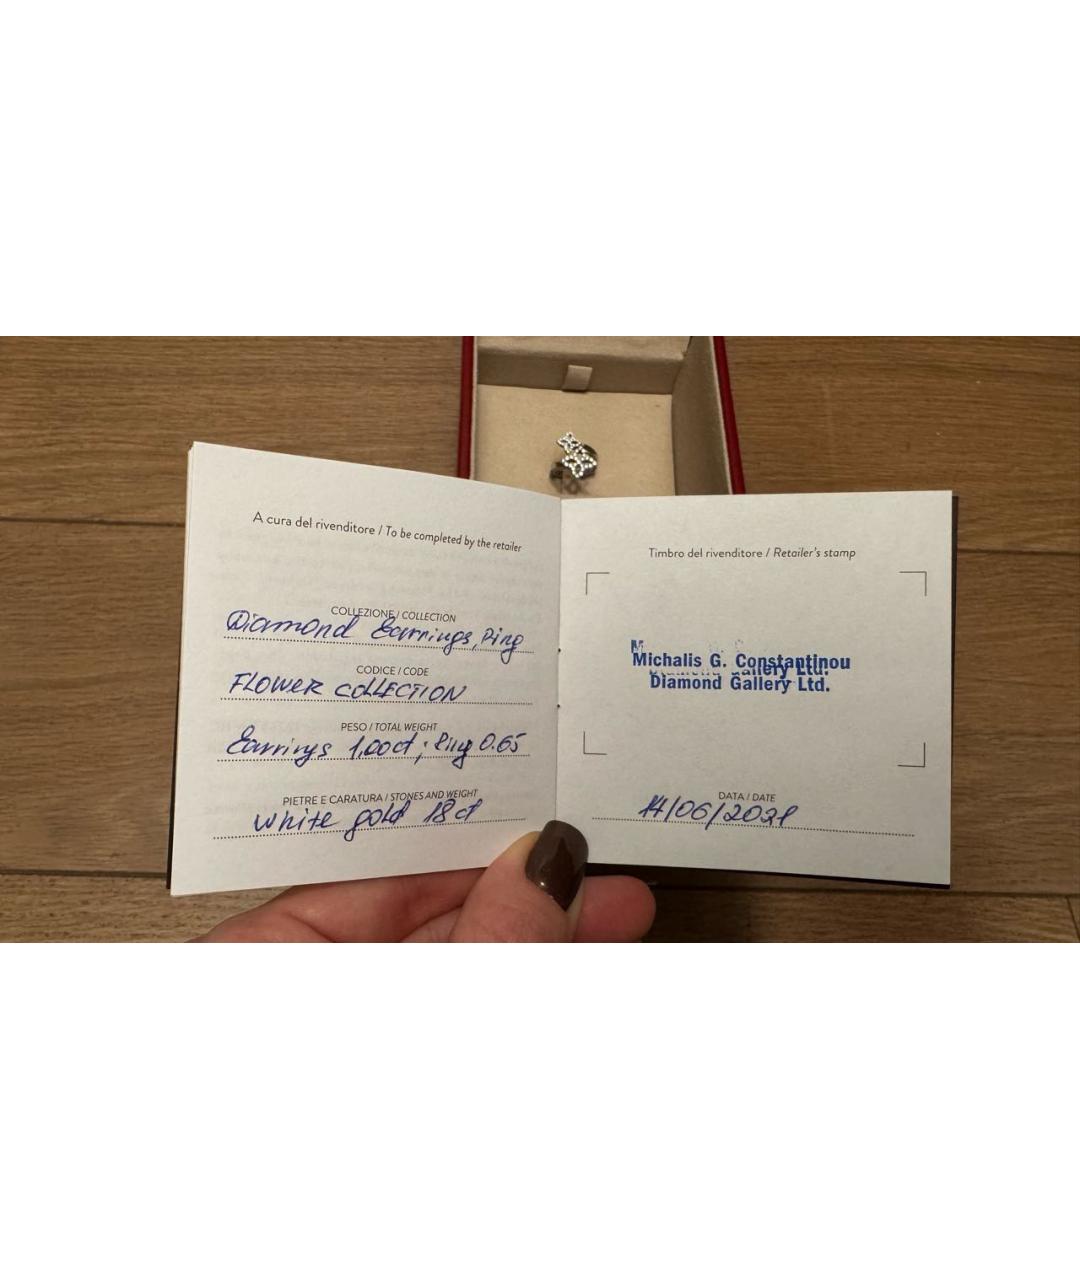 A cura del rivenditore / To be completed by the retailer
COLLEZIONE / COLLECTION
Diamond Earrings, Ring
CODICE / CODE
FLOWER COLLECTION
PESO / TOTAL WEIGHT
Earrings 1,00ct; Ring 0.65
PIETRE E CARATURA / STONES AND WEIGHT
white gold 18 ct
Timbro del rivenditore / Retailer's stamp
Michalis G. Constantinou
Diamond Gallery Ltd.
DATA / DATE
14/06/2021